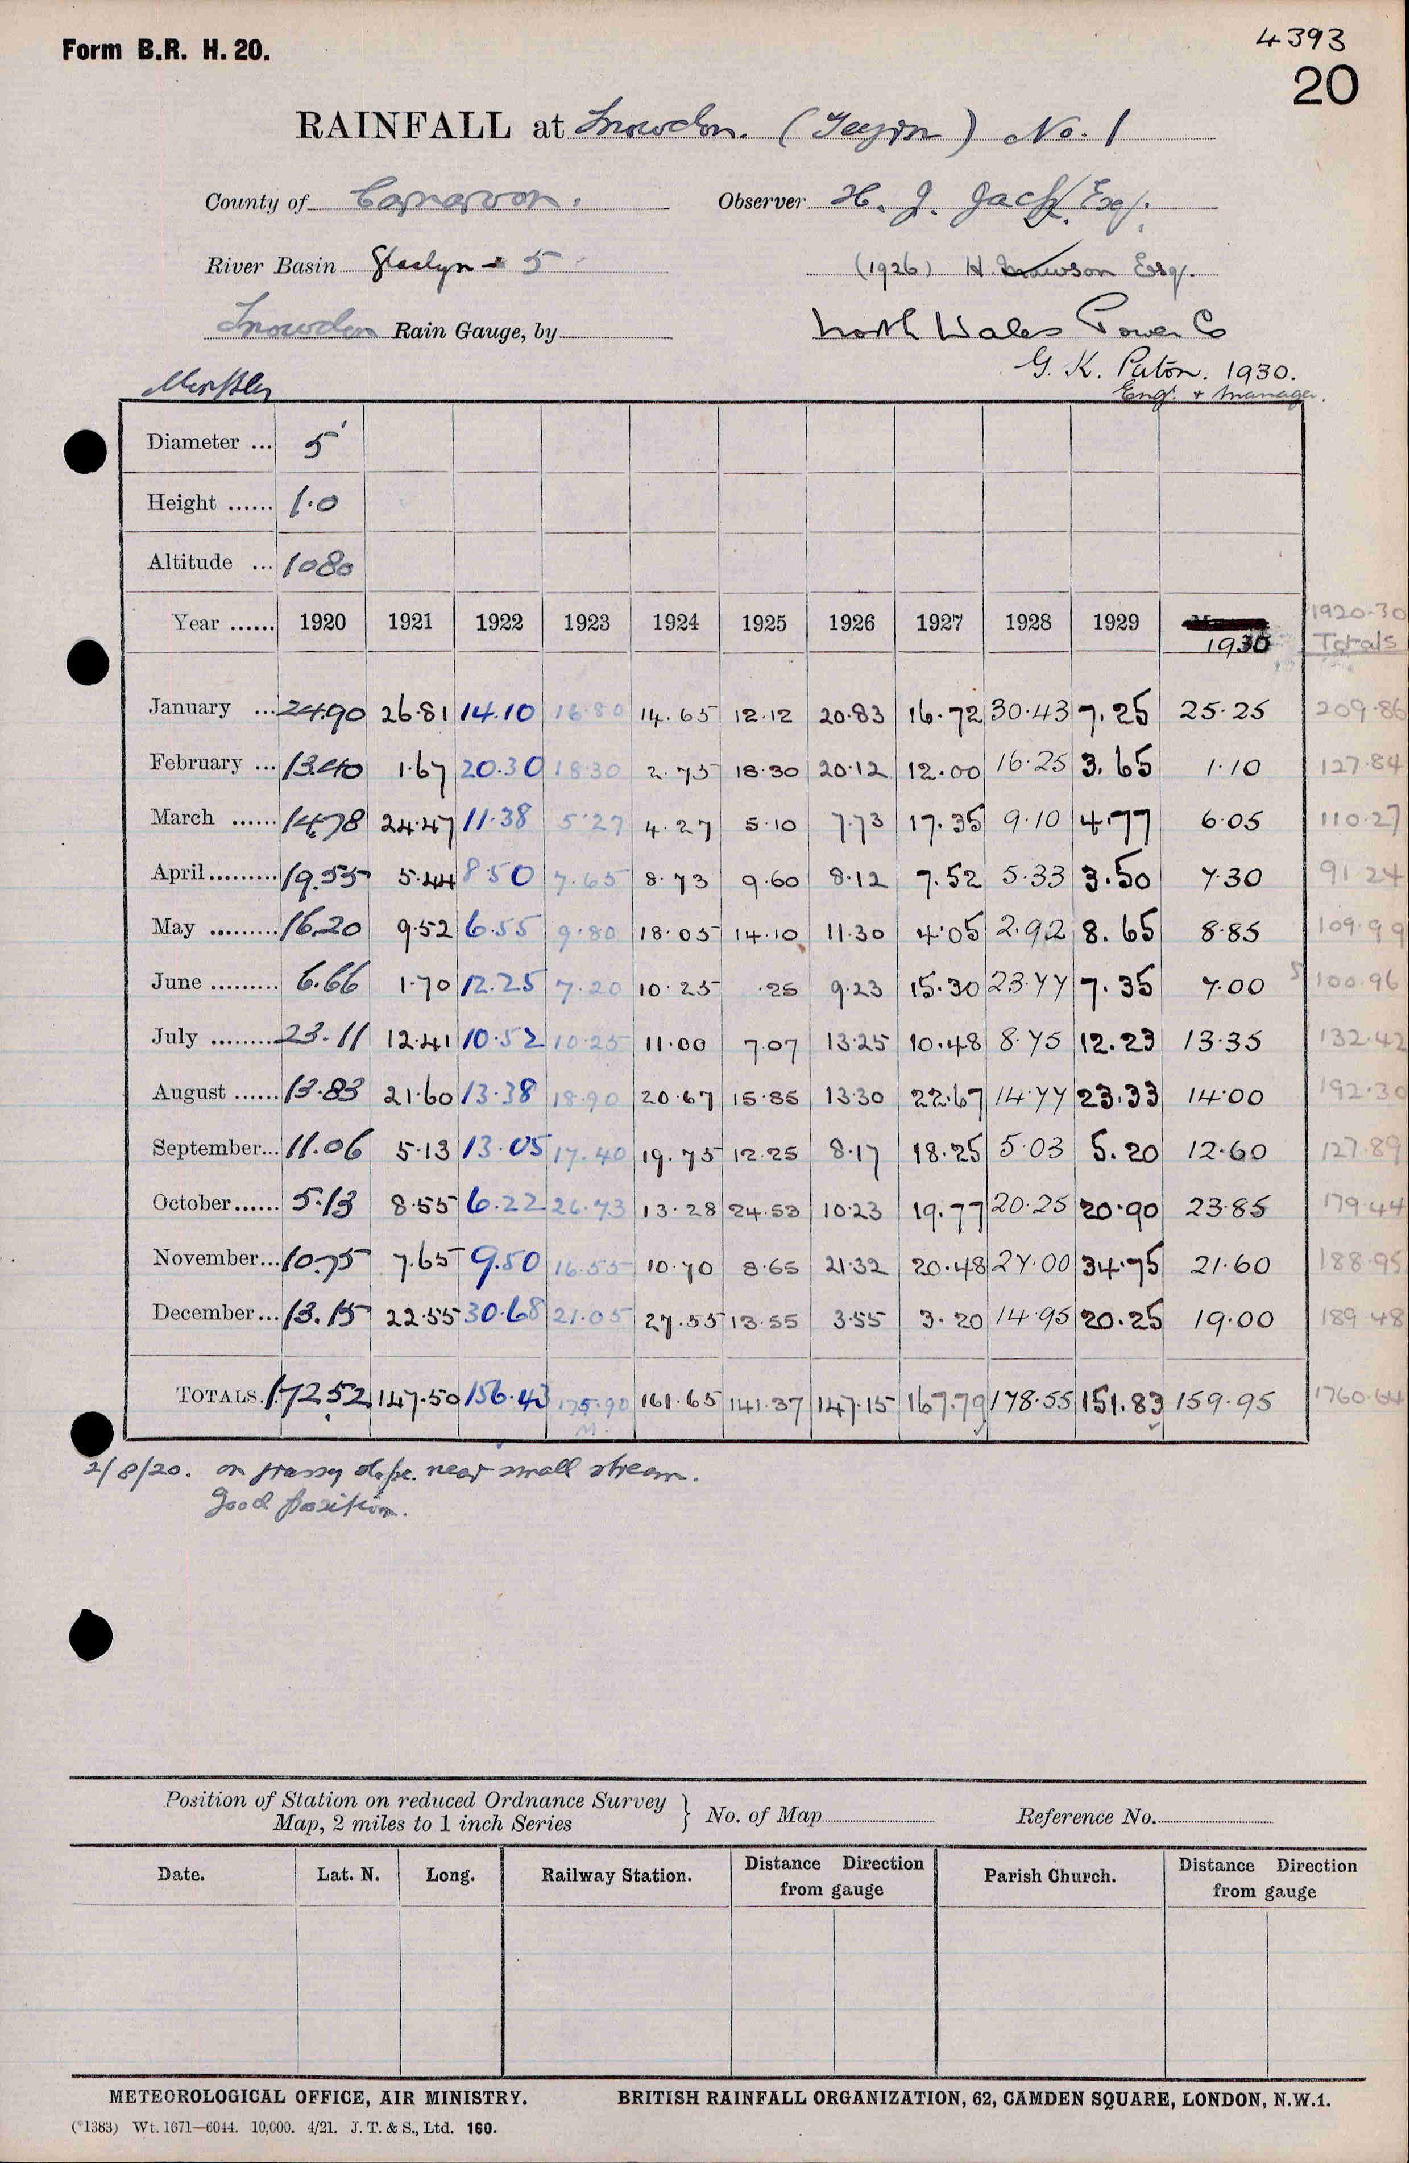 Form B.R. H. 20.
4393
20
RAINFALL at Snowdon. (Teyrn) No. 1
County of Carnarvon. Observer H. J. Jack Esq.
River Basin Glaslyn - 5 (1926) H Lawson Esq.
Snowdon Rain Gauge, by North Wales Power Co
G. K. Paton. 1930.
Monthly Eng. + Manager.
Diameter ... 5
Height ...... 1.0
Altitude ... 1080
Year ...... 1920 1921 1922 1923 1924 1925 1926 1927 1928 1929 1930 1920-30 Totals
January ... 24.90 26.81 14.10 16.80 14.65 12.12 20.83 16.72 30.43 7.25 25.25 209.86
February ... 13.40 1.67 20.30 18.30 2.75 18.30 20.12 12.00 16.25 3.65 1.10 127.84
March ...... 14.78 24.47 11.38 5.27 4.27 5.10 7.73 17.35 9.10 4.77 6.05 110.27
April ......... 19.55 5.44 8.50 7.65 8.73 9.60 8.12 7.52 5.33 3.50 7.30 91.24
May ......... 16.20 9.52 6.55 9.80 18.05 14.10 11.30 4.05 2.92 8.65 8.85 109.99
June ......... 6.66 1.70 12.25 7.20 10.25 .25 9.23 15.30 23.77 7.35 7.00 100.96
July ......... 23.11 12.41 10.52 10.25 11.00 7.07 13.25 10.48 8.75 12.23 13.35 132.42
August ...... 13.83 21.60 13.38 18.90 20.67 15.85 13.30 22.67 14.77 23.33 14.00 192.30
September... 11.06 5.13 13.05 17.40 19.75 12.25 8.17 18.25 5.03 5.20 12.60 127.89
October...... 5.13 8.55 6.22 26.73 13.28 24.53 10.23 19.77 20.25 20.90 23.85 179.44
November... 10.75 7.65 9.50 16.55 10.70 8.65 21.32 20.48 27.00 34.75 21.60 188.95
December... 13.15 22.55 30.68 21.05 27.55 13.55 3.55 3.20 14.95 20.25 19.00 189.48
TOTALS. 172.52 147.50 156.43 175.90 161.65 141.37 147.15 167.79 178.55 151.83 159.95 1760.64
M.
2/8/20. on grassy slope. near small stream.
Good position.
Position of Station on reduced Ordnance Survey
Map, 2 miles to 1 inch Series } No. of Map Reference No.
Date. Lat. N. Long. Railway Station. Distance Direction from gauge Parish Church. Distance Direction from gauge
METEOROLOGICAL OFFICE, AIR MINISTRY. BRITISH RAINFALL ORGANIZATION, 62, CAMDEN SQUARE, LONDON, N.W.1.
(*1383) Wt. 1671—6044. 10,000. 4/21. J. T. & S., Ltd. 160.